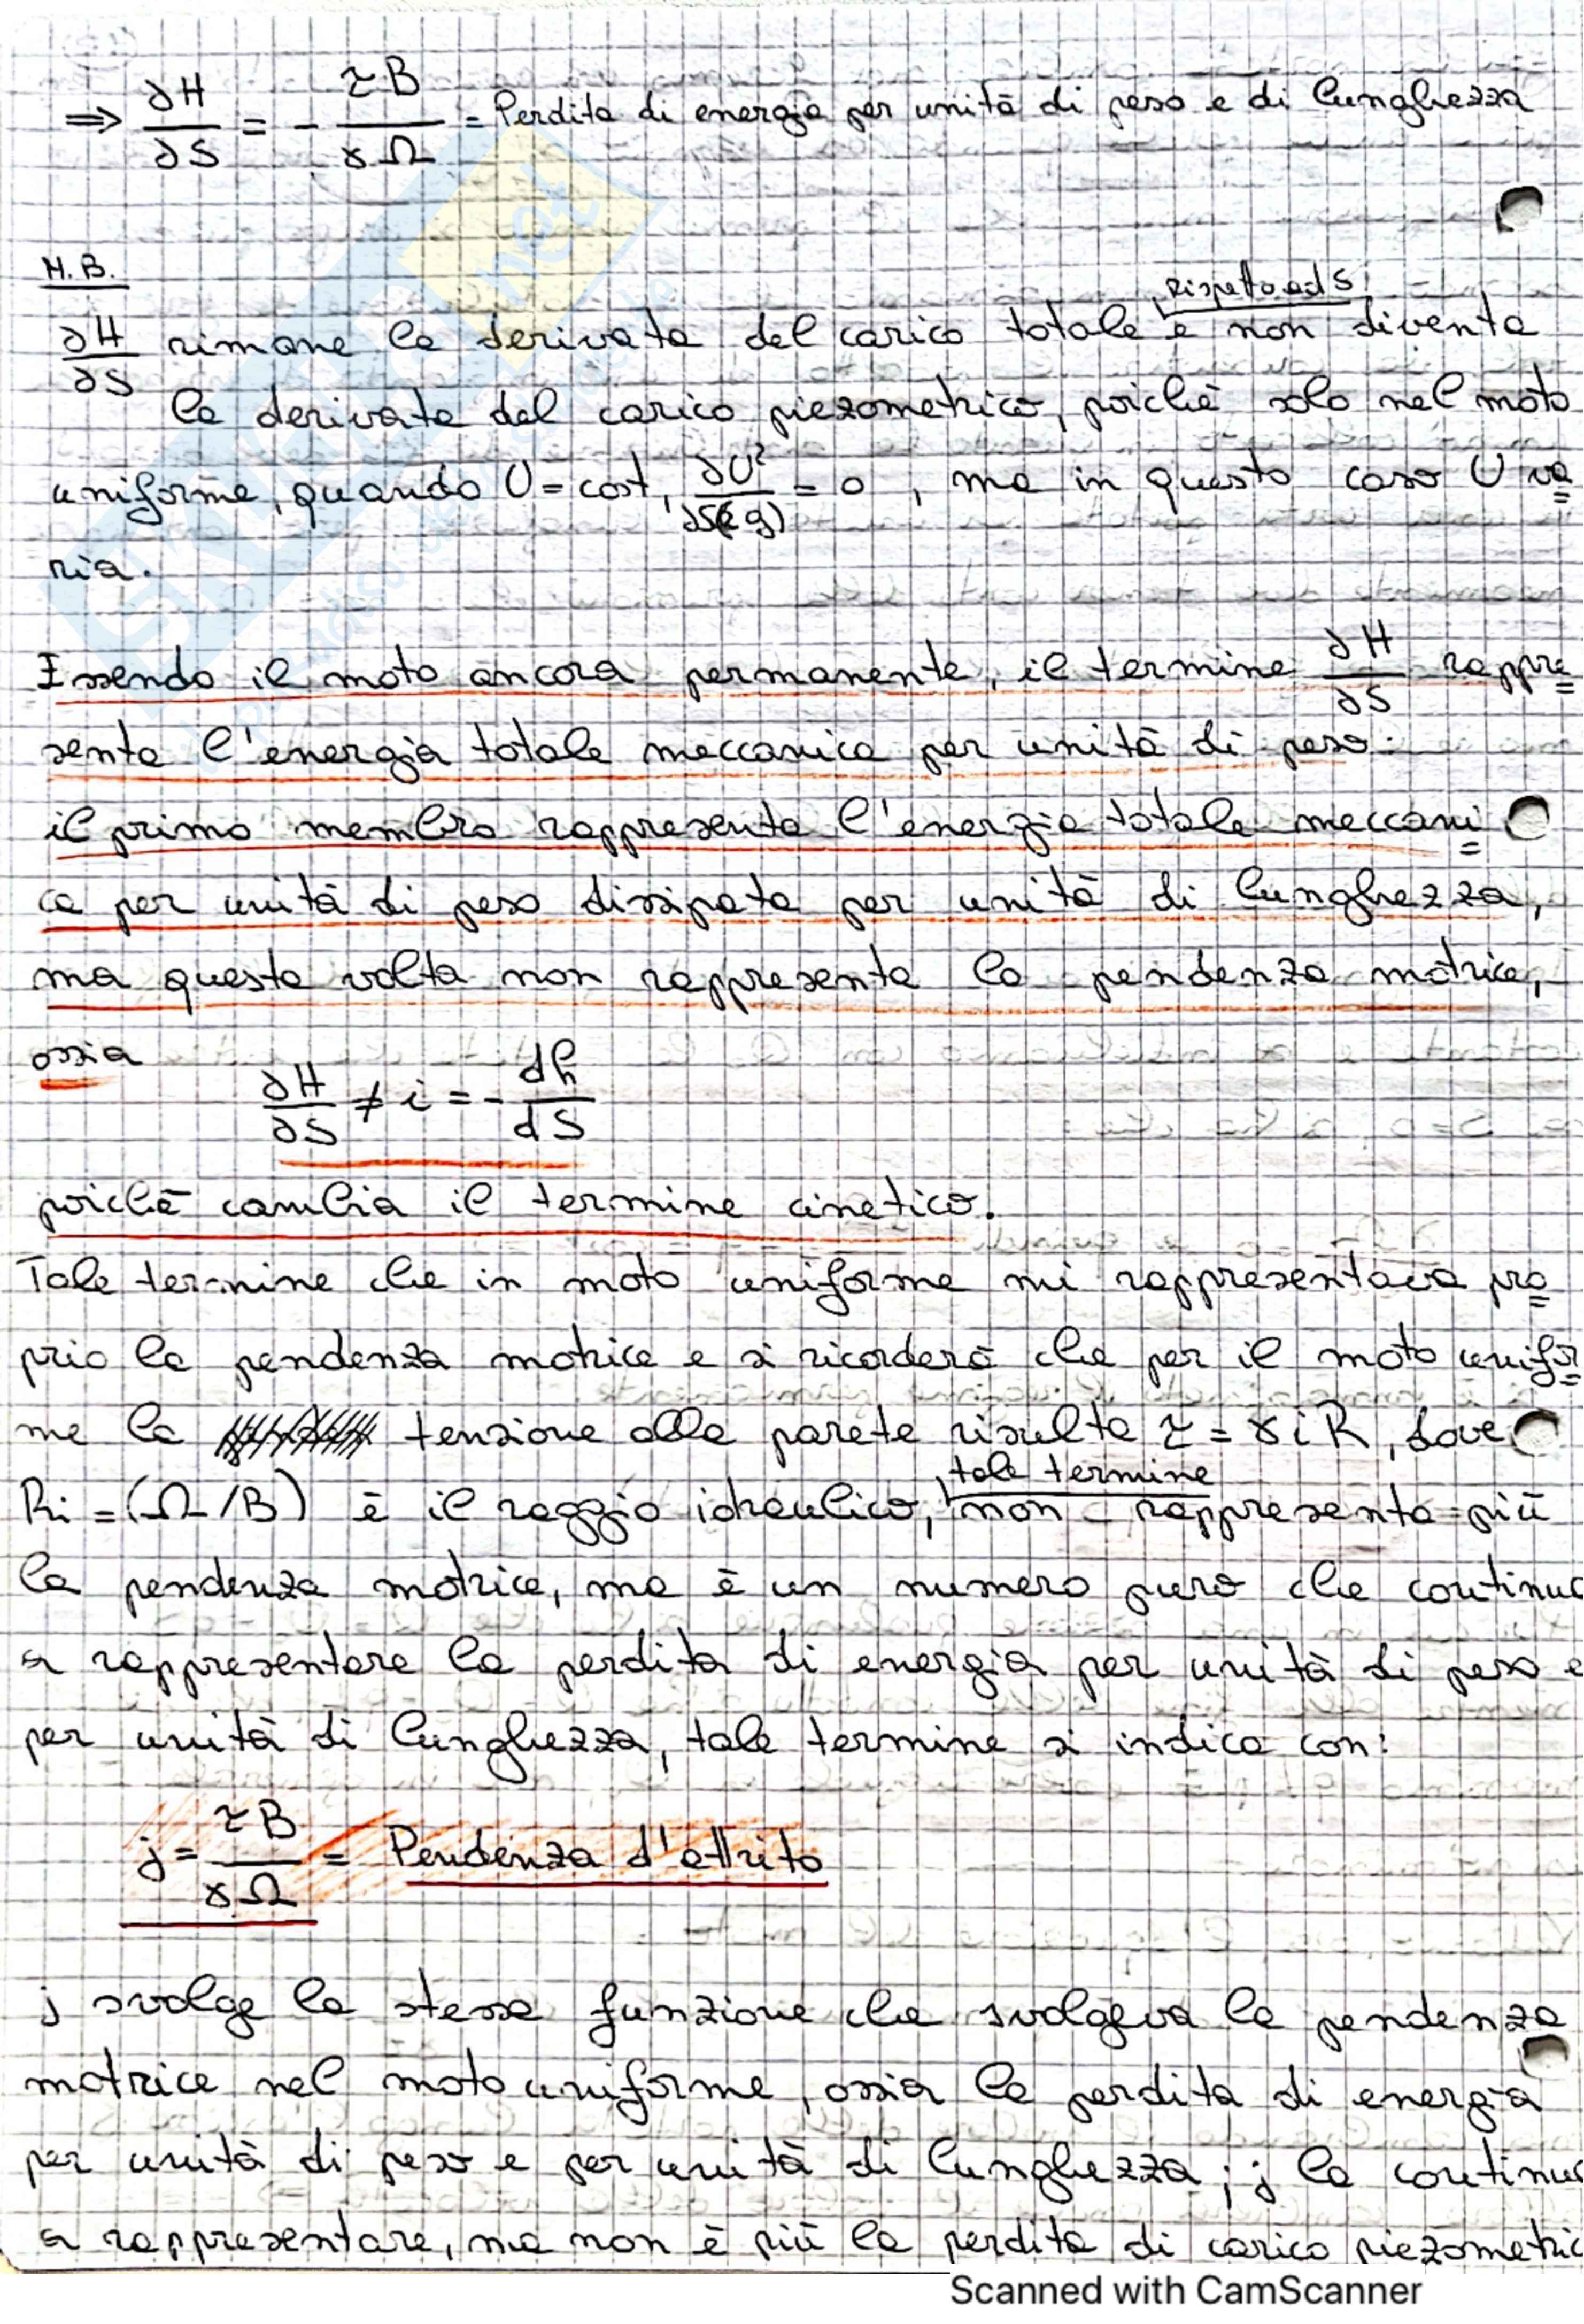 ⇒ ∂H/∂S = - τB/γΩ = Perdita di energia per unità di peso e di lunghezza
N.B.
rispetto ad S
∂H/∂S rimane la derivata del carico totale e non diventa
la derivata del carico piezometrico, poichè solo nel moto
uniforme, quando U = cost, ∂U²/∂S(2g) = 0, ma in questo caso U va=
ria.
Essendo il moto ancora permanente, il termine ∂H/∂S rappre=
senta l'energia totale meccanica per unità di peso:
il primo membro rappresenta l'energia totale meccani=
ca per unità di peso dissipata per unità di lunghezza,
ma questa volta non rappresenta la pendenza motrice,
ossia
∂H/∂S ≠ i = - dh/dS
poichè cambia il termine cinetico.
Tale termine che in moto uniforme mi rappresentava pro=
prio la pendenza motrice e si ricorderà che per il moto unifor=
me la tensione alla parete risulta τ = γiR, dove
tale termine
Ri = (Ω/B) è il raggio idraulico, non rappresenta più
la pendenza motrice, ma è un numero puro che continua
a rappresentare la perdita di energia per unità di peso e
per unità di lunghezza, tale termine si indica con:
j = τB/γΩ = Pendenza d'attrito
j svolge la stessa funzione che svolgeva la pendenza
motrice nel moto uniforme, ossia la perdita di energia
per unità di peso e per unità di lunghezza; j la continua
a rappresentare, ma non è più la perdita di carico piezometric
Scanned with CamScanner